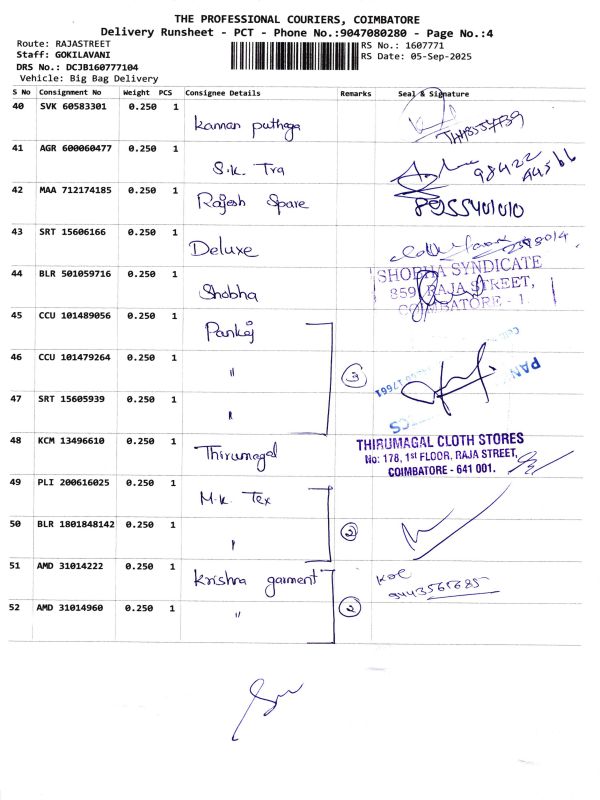 THE PROFESSIONAL COURIERS, COIMBATORE
Delivery Runsheet - PCT - Phone No.:9047080280 - Page No.:4
Route: RAJASTREET
Staff: GOKILAVANI
DRS No.: DCJB160777104
Vehicle: Big Bag Delivery
RS No.: 1607771
RS Date: 05-Sep-2025
S No Consignment No Weight PCS Consignee Details Remarks Seal & Signature
40 SVK 60583301 0.250 1
Kannan puthaga
41 AGR 600060477 0.250 1
S.K. Tra
98422
42 MAA 712174185 0.250 1
Rajesh Spare
8955401010
43 SRT 15606166 0.250 1
Deluxe
44 BLR 501059716 0.250 1
Shobha
SHOBHA SYNDICATE
859, RAJA STREET,
COIMBATORE - 1.
45 CCU 101489056 0.250 1
Pankaj
46 CCU 101479264 0.250 1
"
3
47 SRT 15605939 0.250 1
"
48 KCM 13496610 0.250 1
Thirumagal
THIRUMAGAL CLOTH STORES
No: 178, 1st FLOOR, RAJA STREET,
COIMBATORE - 641 001.
49 PLI 200616025 0.250 1
M.K. Tex
50 BLR 1801848142 0.250 1
"
2
51 AMD 31014222 0.250 1
Krishna garment
9443565685
52 AMD 31014960 0.250 1
"
2